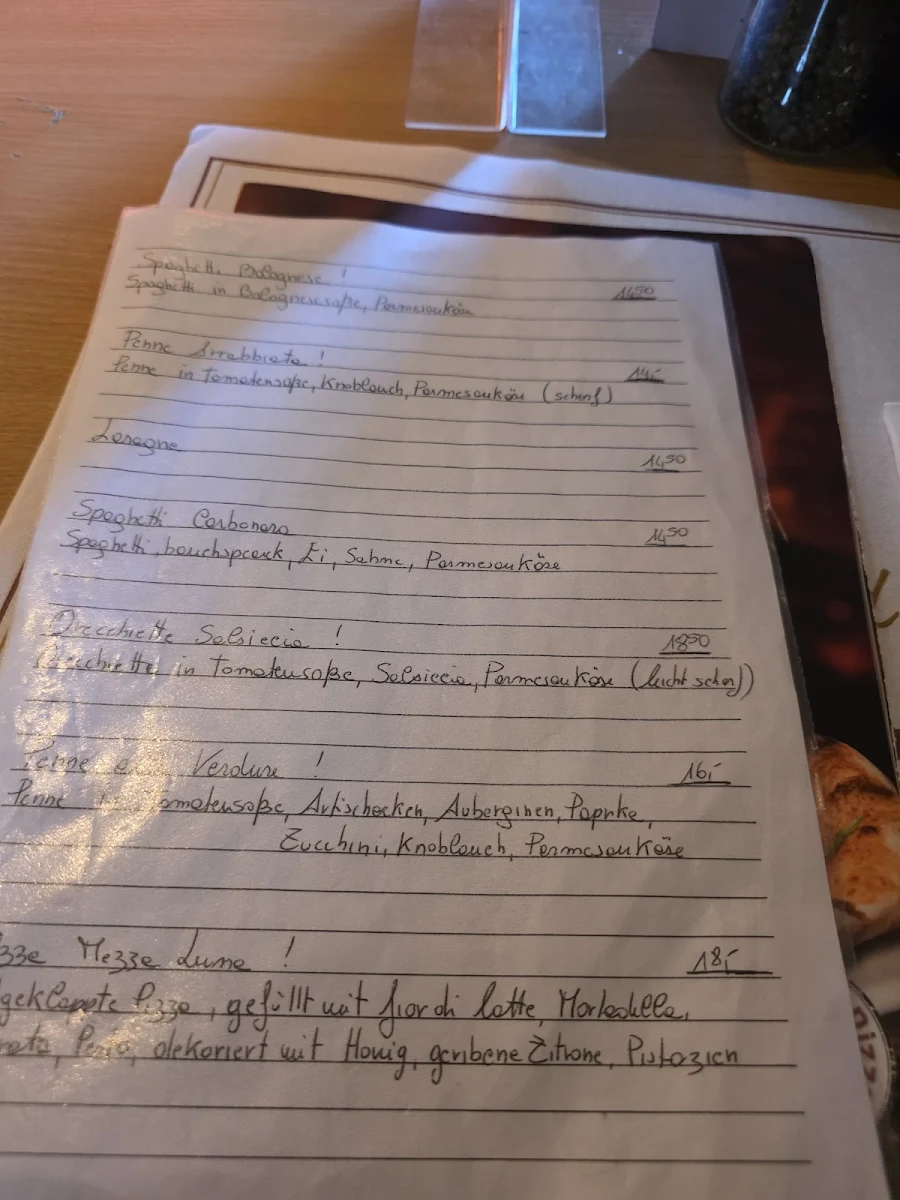 Spaghetti Bolognese !
14,50
Spaghetti in Bolognesesoße, Parmesankäse
Penne Arrabbiata !
14,-
Penne in Tomatensoße, Knoblauch, Parmesankäse (scharf)
Lasagne
14,50
Spaghetti Carbonara
14,50
Spaghetti, bauchspeack, Ei, Sahne, Parmesankäse
Orecchiette Salsiccia !
18,50
Orecchiette in Tomatensoße, Salsiccia, Parmesankäse (leicht scharf)
Penne Verdure !
16,-
Penne Tomatensoße, Artischocken, Auberginen, Paprika,
Zucchini, Knoblauch, Parmesankäse
Mezza Luna !
18,-
geklappte Pizza, gefüllt mit fior di latte, Mortadella,
dekoriert mit Honig, geribene Zitrone, Pistazien